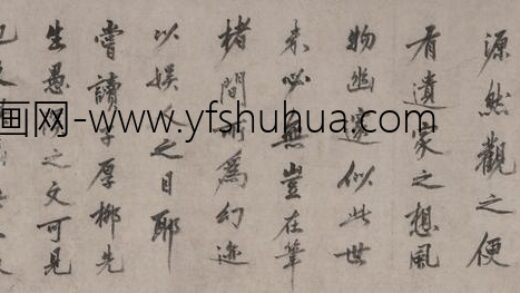 源然觀之便
有遺家之想風
物幽邃似此世
未必無豈在筆
楮間所為幻迹
以娛人之目耶
嘗讀子厚柳先
生愚溪之文可見
画网-www.yfshuhua.com